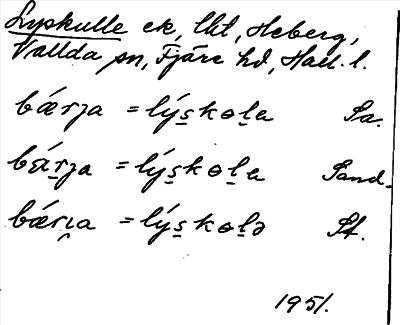 Lyskulle ek, lht, Heberg,
Vallda sn, Fjäre hd, Hall. l.
bǽrɟa = lýs̱kɵḻa Sa.
bǽṟɟa = lýs̱kɵḻa Sand.
bǽrɩ̯a = lýs̱kɵḻə St.
1951.